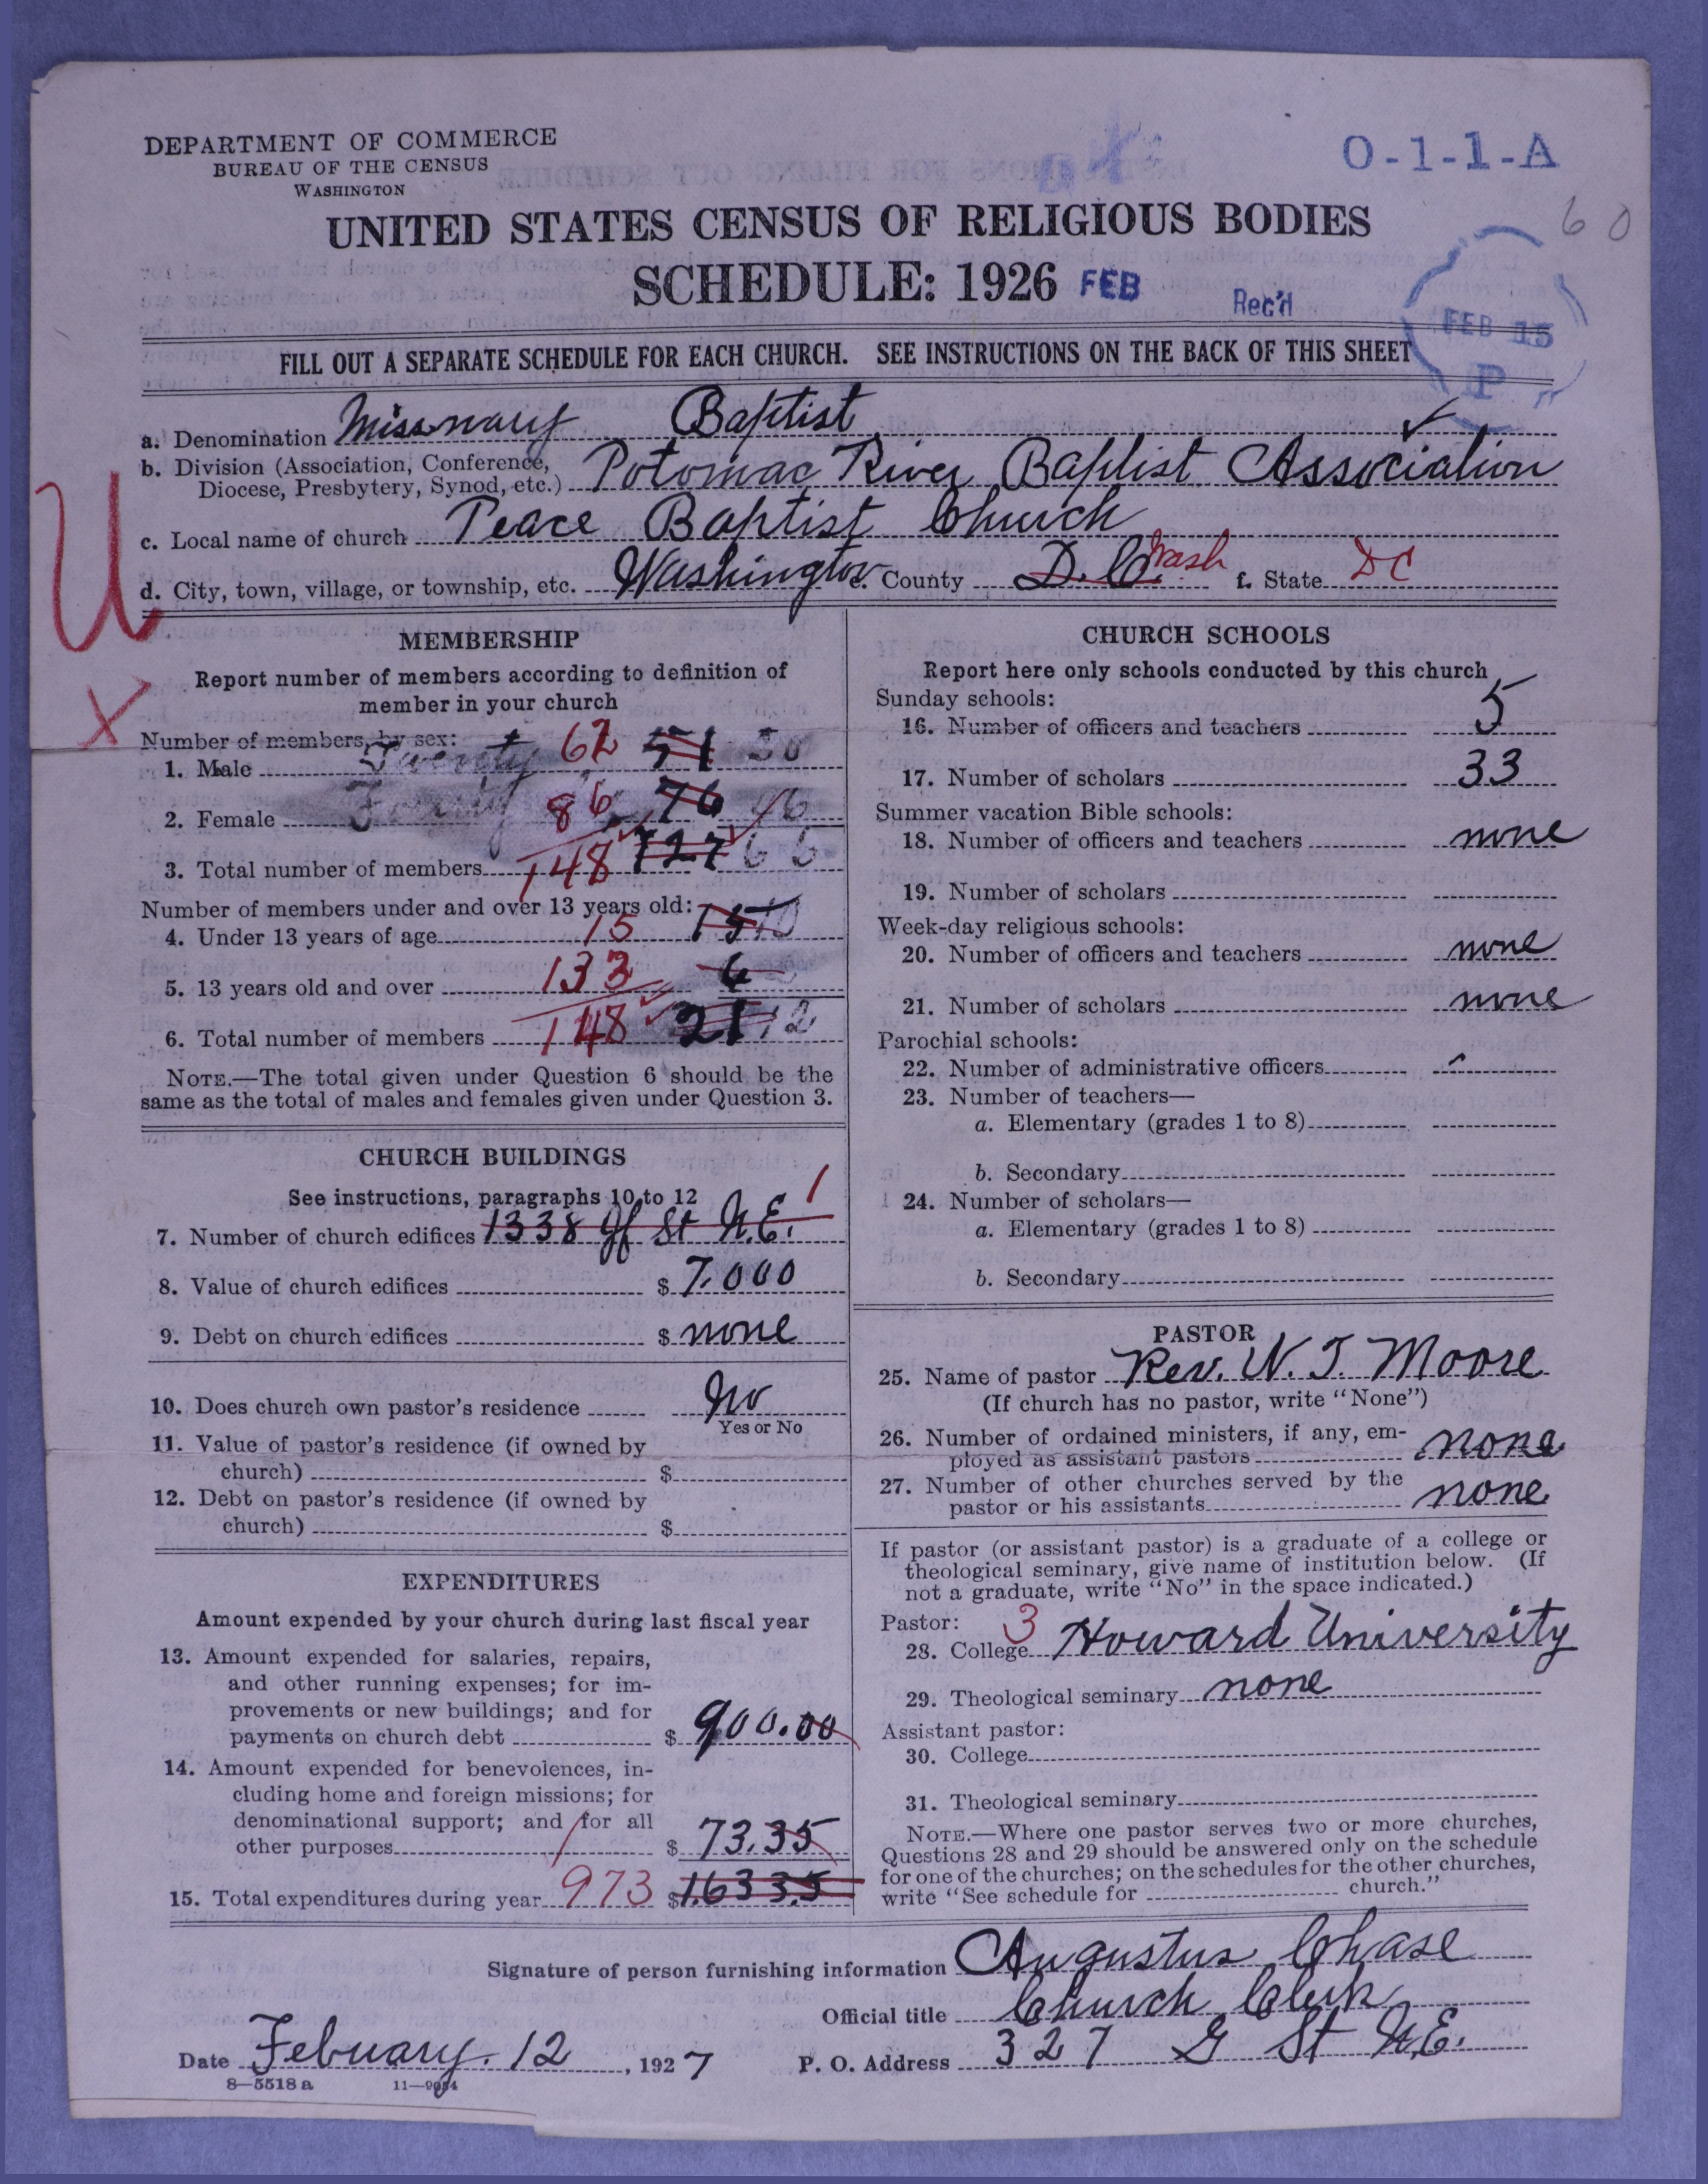 DEPARTMENT OF COMMERCE
BUREAU OF THE CENSUS
WASHINGTON
O-1-1-A
60
UNITED STATES CENSUS OF RELIGIOUS BODIES
SCHEDULE: 1926 FEB Rec'd FEB 15 P
FILL OUT A SEPARATE SCHEDULE FOR EACH CHURCH. SEE INSTRUCTIONS ON THE BACK OF THIS SHEET
a. Denomination Missnary Baptist
b. Division (Association, Conference, Diocese, Presbytery, Synod, etc.) Potomac River Baptist Association
c. Local name of church Peace Baptist Church
d. City, town, village, or township, etc. Washington e. County D.C. Wash f. State DC
U
X
MEMBERSHIP
Report number of members according to definition of
member in your church
Number of members, by sex:
1. Male Twenty 62 51 50
2. Female Forty 86 76 46
3. Total number of members 148 127 66
Number of members under and over 13 years old:
4. Under 13 years of age 15 15
5. 13 years old and over 133 6
6. Total number of members 148 21 12
NOTE.—The total given under Question 6 should be the
same as the total of males and females given under Question 3.
CHURCH BUILDINGS
See instructions, paragraphs 10 to 12
7. Number of church edifices 1338 St N.E. 1
8. Value of church edifices $ 7.000
9. Debt on church edifices $ none
10. Does church own pastor's residence No
Yes or No
11. Value of pastor's residence (if owned by
church) $
12. Debt on pastor's residence (if owned by
church) $
EXPENDITURES
Amount expended by your church during last fiscal year
13. Amount expended for salaries, repairs,
and other running expenses; for im-
provements or new buildings; and for
payments on church debt $ 900.00
14. Amount expended for benevolences, in-
cluding home and foreign missions; for
denominational support; and for all
other purposes $ 73.35
15. Total expenditures during year 973 $ 1.633.5
CHURCH SCHOOLS
Report here only schools conducted by this church
Sunday schools:
16. Number of officers and teachers 5
17. Number of scholars 33
Summer vacation Bible schools:
18. Number of officers and teachers none
19. Number of scholars
Week-day religious schools:
20. Number of officers and teachers none
21. Number of scholars none
Parochial schools:
22. Number of administrative officers
23. Number of teachers—
a. Elementary (grades 1 to 8)
b. Secondary
24. Number of scholars—
a. Elementary (grades 1 to 8)
b. Secondary
PASTOR
25. Name of pastor Rev. N. T. Moore
(If church has no pastor, write "None")
26. Number of ordained ministers, if any, em-
ployed as assistant pastors none
27. Number of other churches served by the
pastor or his assistants none
If pastor (or assistant pastor) is a graduate of a college or
theological seminary, give name of institution below. (If
not a graduate, write "No" in the space indicated.)
Pastor:
28. College 3 Howard University
29. Theological seminary none
Assistant pastor:
30. College
31. Theological seminary
NOTE.—Where one pastor serves two or more churches,
Questions 28 and 29 should be answered only on the schedule
for one of the churches; on the schedules for the other churches,
write "See schedule for church."
Signature of person furnishing information Augustus Chase
Official title Church Clerk
Date Febuary. 12, 1927 P. O. Address 327 G St N.E.
8—5518 a 11—9054